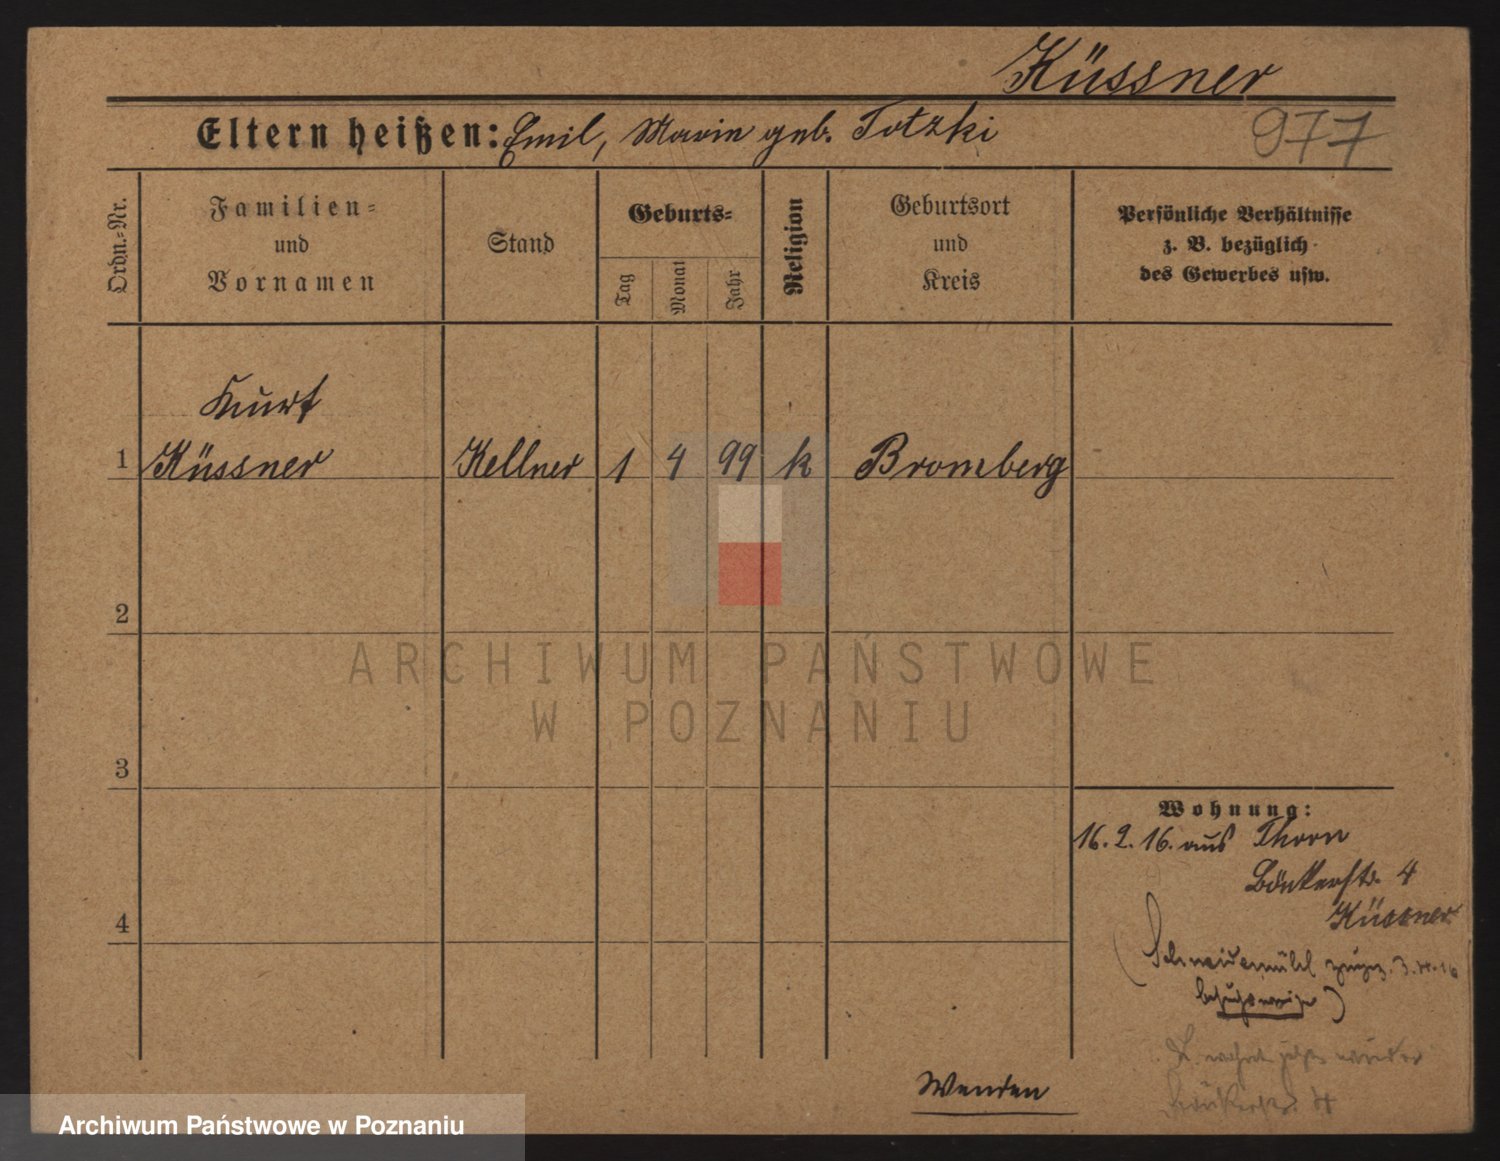 Küssner
Eltern heißen: Emil, Marie geb. Totzki
977
Ordn.=Nr.
Familien=
und
Vornamen
Stand
Geburts=
Tag
Monat
Jahr
Religion
Geburtsort
und
Kreis
Persönliche Verhältnisse
z. B. bezüglich
des Gewerbes usw.
Kurt
1 Küssner Kellner 1 4 99 k Bromberg
2
ARCHIWUM PAŃSTWOWE
W POZNANIU
3
4
Wohnung:
16. 2. 16. aus Thorn
4
Küssner
(Schneidemühl 3.4.16
besuchsweise)
wohnt jetzt wieder
4
Wenden
Archiwum Państwowe w Poznaniu